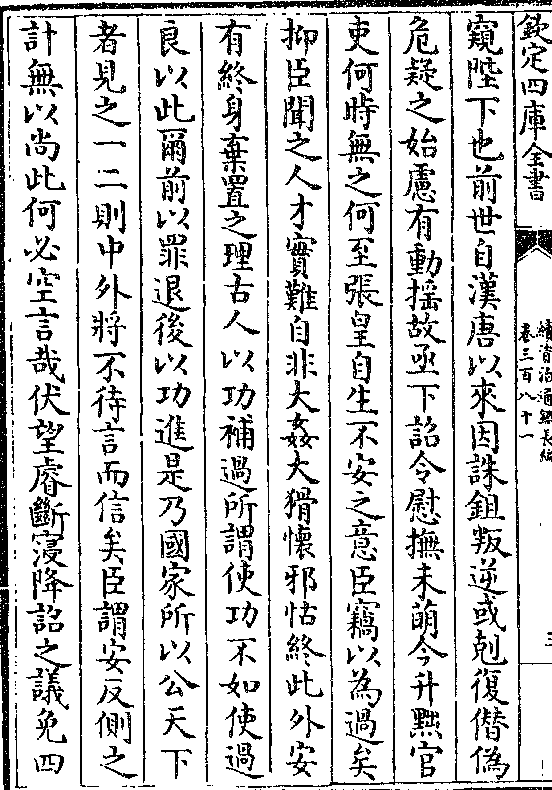 欽定四庫全書
續資治通鑑長編
卷三百八十一
三
窺陛下也前世自漢唐以來因誅鉏叛逆或剋復僭偽
危疑之始慮有動揺故亟下詔令慰撫未萌今升黜官
吏何時無之何至張皇自生不安之意臣竊以為過矣
抑臣聞之人才實難自非大姦大猾懷邪怙終此外安
有終身棄置之理古人以功補過所謂使功不如使過
良以此爾前以罪退後以功進是乃國家所以公天下
者見之一二則中外將不待言而信矣臣謂安反側之
計無以尚此何必空言哉伏望睿斷寢降詔之議免四